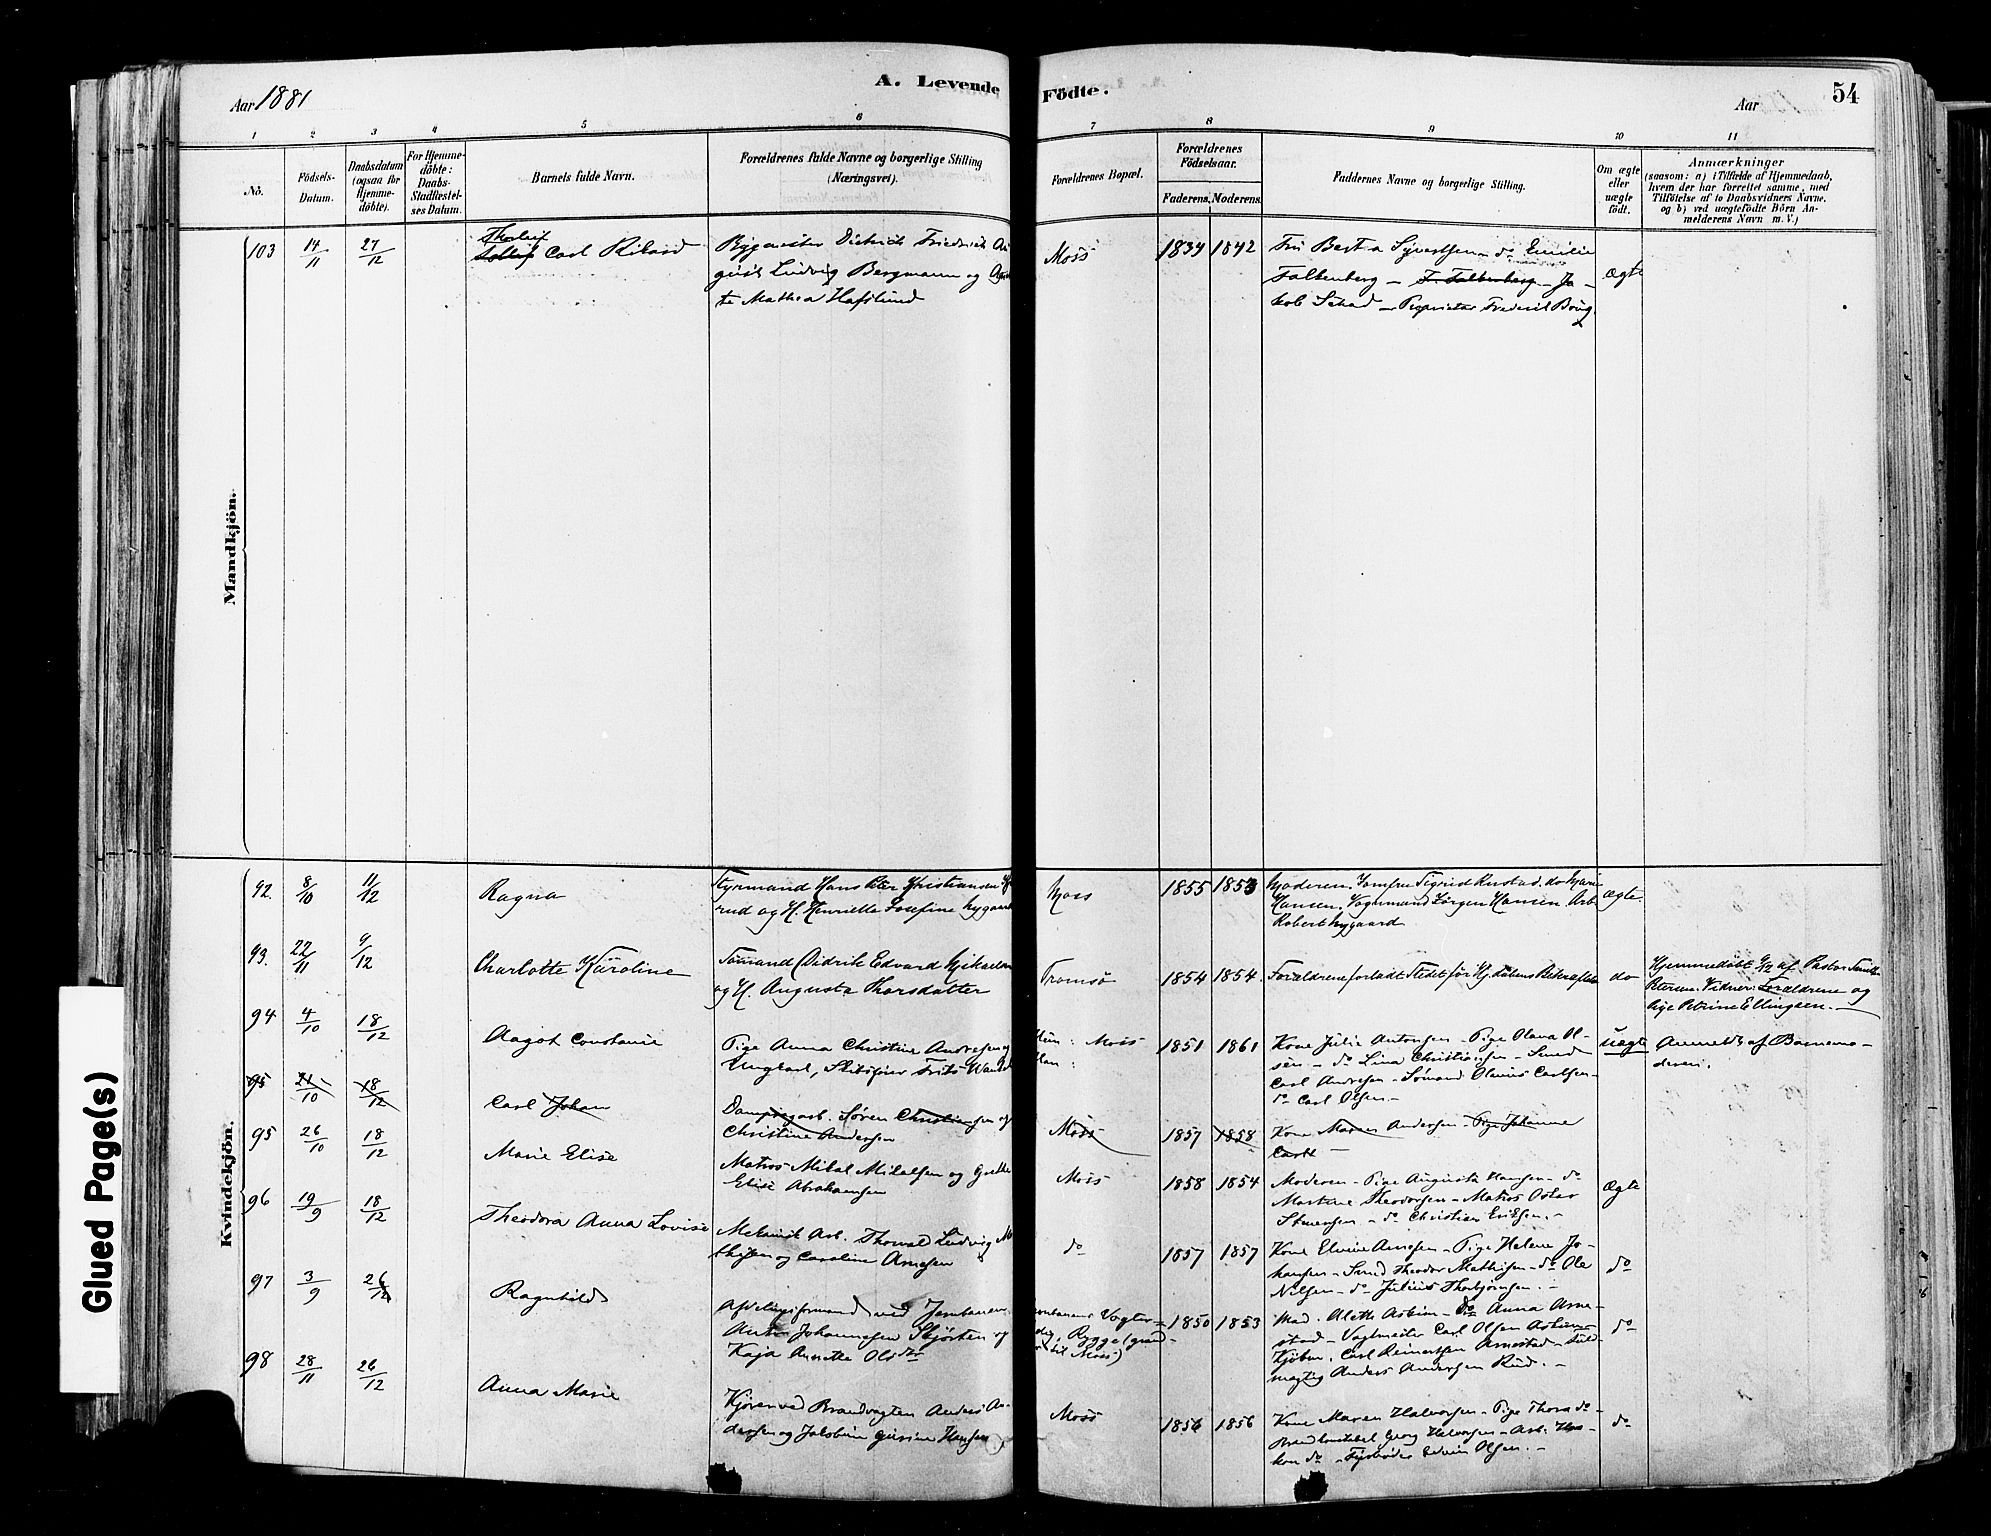 Aar 1881
A. Levende
Födte.
Aar
54
1 2 3 4 5 6 7 8 9 10 11
No.
Födsels-Datum.
Daabsdatum (ogsaa for Hjemme-döbte).
For Hjemme-döbte: Daabs-Stadfæstel-ses Datum.
Barnets fulde Navn.
Forældrenes fulde Navne og borgerlige Stilling (Næringsvei).
Forældrenes Bopæl.
Forældrenes Födselsaar.
Faderens. Moderens.
Faddernes Navne og borgerlige Stilling.
Om ægte eller uægte födt.
Anmærkninger
(saasom: a) i Tilfælde af Hjemmedaab,
hvem der har forrettet samme, med
Tilföielse af to Daabsvidners Navne.
og b) ved uægtefödte Börn An-
melderens Navn m. V.)
Mandkjön.
103 14/11 27/12 Thorleif Carl Rikard
Bygmester Dietrich Friederich Au
gust Ludvig Bergmann og
te Mathea Hafslund
Moss 1834 1842
Fru Berta Syvertsen do Emilie
Falkenberg - F. Falkenberg - Ja-
kob Schad - Proprietær Frederik
Ægte
Kvindekjön.
92. 8/10 11/12 Ragna
Styrmand Hans Peter Kristiansen
rud og H. Henriette Josefine Nygaard
Moss 1855 1853
Moderen. Jomfru Sigrid Rustad. do Marie
Hansen. Vognmand Jørgen Hansen. Arb
Robert Nygaard
ægte.
93. 22/11 9/12 Charlotte Karoline
Sömand Didrik Edvard Mikaelsen
og H. Augusta Thorsdatter
Tromsö 1854 1854.
Forældrene forladt Stedet før Hj. daabens Bekræftelse
do
Hjemmedöbt 9/12 af Pastor
Petersen. Vidner: Forældrene og
Pige Petrine Ellingsen.
94 4/10 18/12 Aagot Constanse
Pige Anna Christine Andresen og
Ungkarl, Fritz
Hun: Moss
Han:
1851 1861
Kone Julie Antonsen - Pige Olava Ol-
sen - do Lina Christiansen - Smed
Carl Andresen - Sömand Olavus Carlsen -
do Carl Olsen -
uægte
Anmeldt af Barnemo-
deren.
95 21/10 18/12 Carl Johan
Dampsagarb. Sören Christiansen og
Christine Andersen
Moss 1857 1858
Kone Maren Andersen - Pige Johanne
95 26/10 18/12 Marie Elise
Matros Mikal Mikalsen og Grethe
Elise Abrahamsen
Moss 1858 1854
Moderen - Pige Augusta Hansen - do
Martine Theodorsen - Matros Oskar
do Christian Eriksen. -
Ægte
96 19/9 18/12 Theodora Anna Lovise
Mekanisk Arb. Thorvald Ludvig M
thisen og Caroline Arnesen
do 1857 1857
Kone Elvine Arnesen - Pige Helene Jo-
hansen - Smed Theodor Mathisen - do Ole
Nilsen - do Julius Thorbjörnsen. -
do
97 3/9 26/12 Ragnhild
Afdelingsformand ved Jernbanen
Anton Johannesen Skjørten og
Kaja Annette Olsdtr
Jernbanens Vogter-
Rygge (grænd-
til Moss)
1850 1853
Mad. Alethe Askim - do Anna Arne-
stad - Vagtmester Carl Olsen Askim -
Kjöbm. Carl Reinertsen Arnestad - Fuld-
mægtig Anders Andersen Rud. -
do
98 28/11 26/12 Anna Marie
Kjører ved Brandvagten Anders An
dersen og Jakobine Gurine Hansen
Moss 1856 1856
Kone Maren Halvorsen - Pige Thora do -
Brandkonstabel Georg Halvorsen - Arb. Haa-
kon do - Fyrbøder Edvin Olsen. -
do
Glued Page(s)